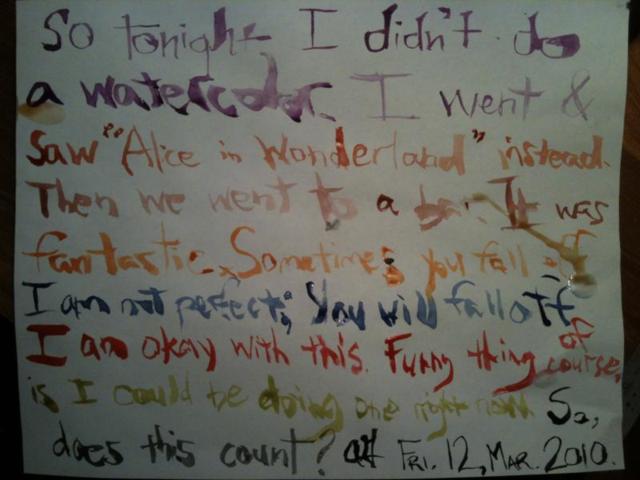 So tonight I didn't do
a watercolor. I went &
saw "Alice in Wonderland" instead.
Then we went to a bar. It was
fantastic. Sometimes you fall off
I am not perfect; you will fall off
of
I am okay with this. Funny thing course.
is I could be doing one right now. So,
does this count? Fri. 12, Mar. 2010.